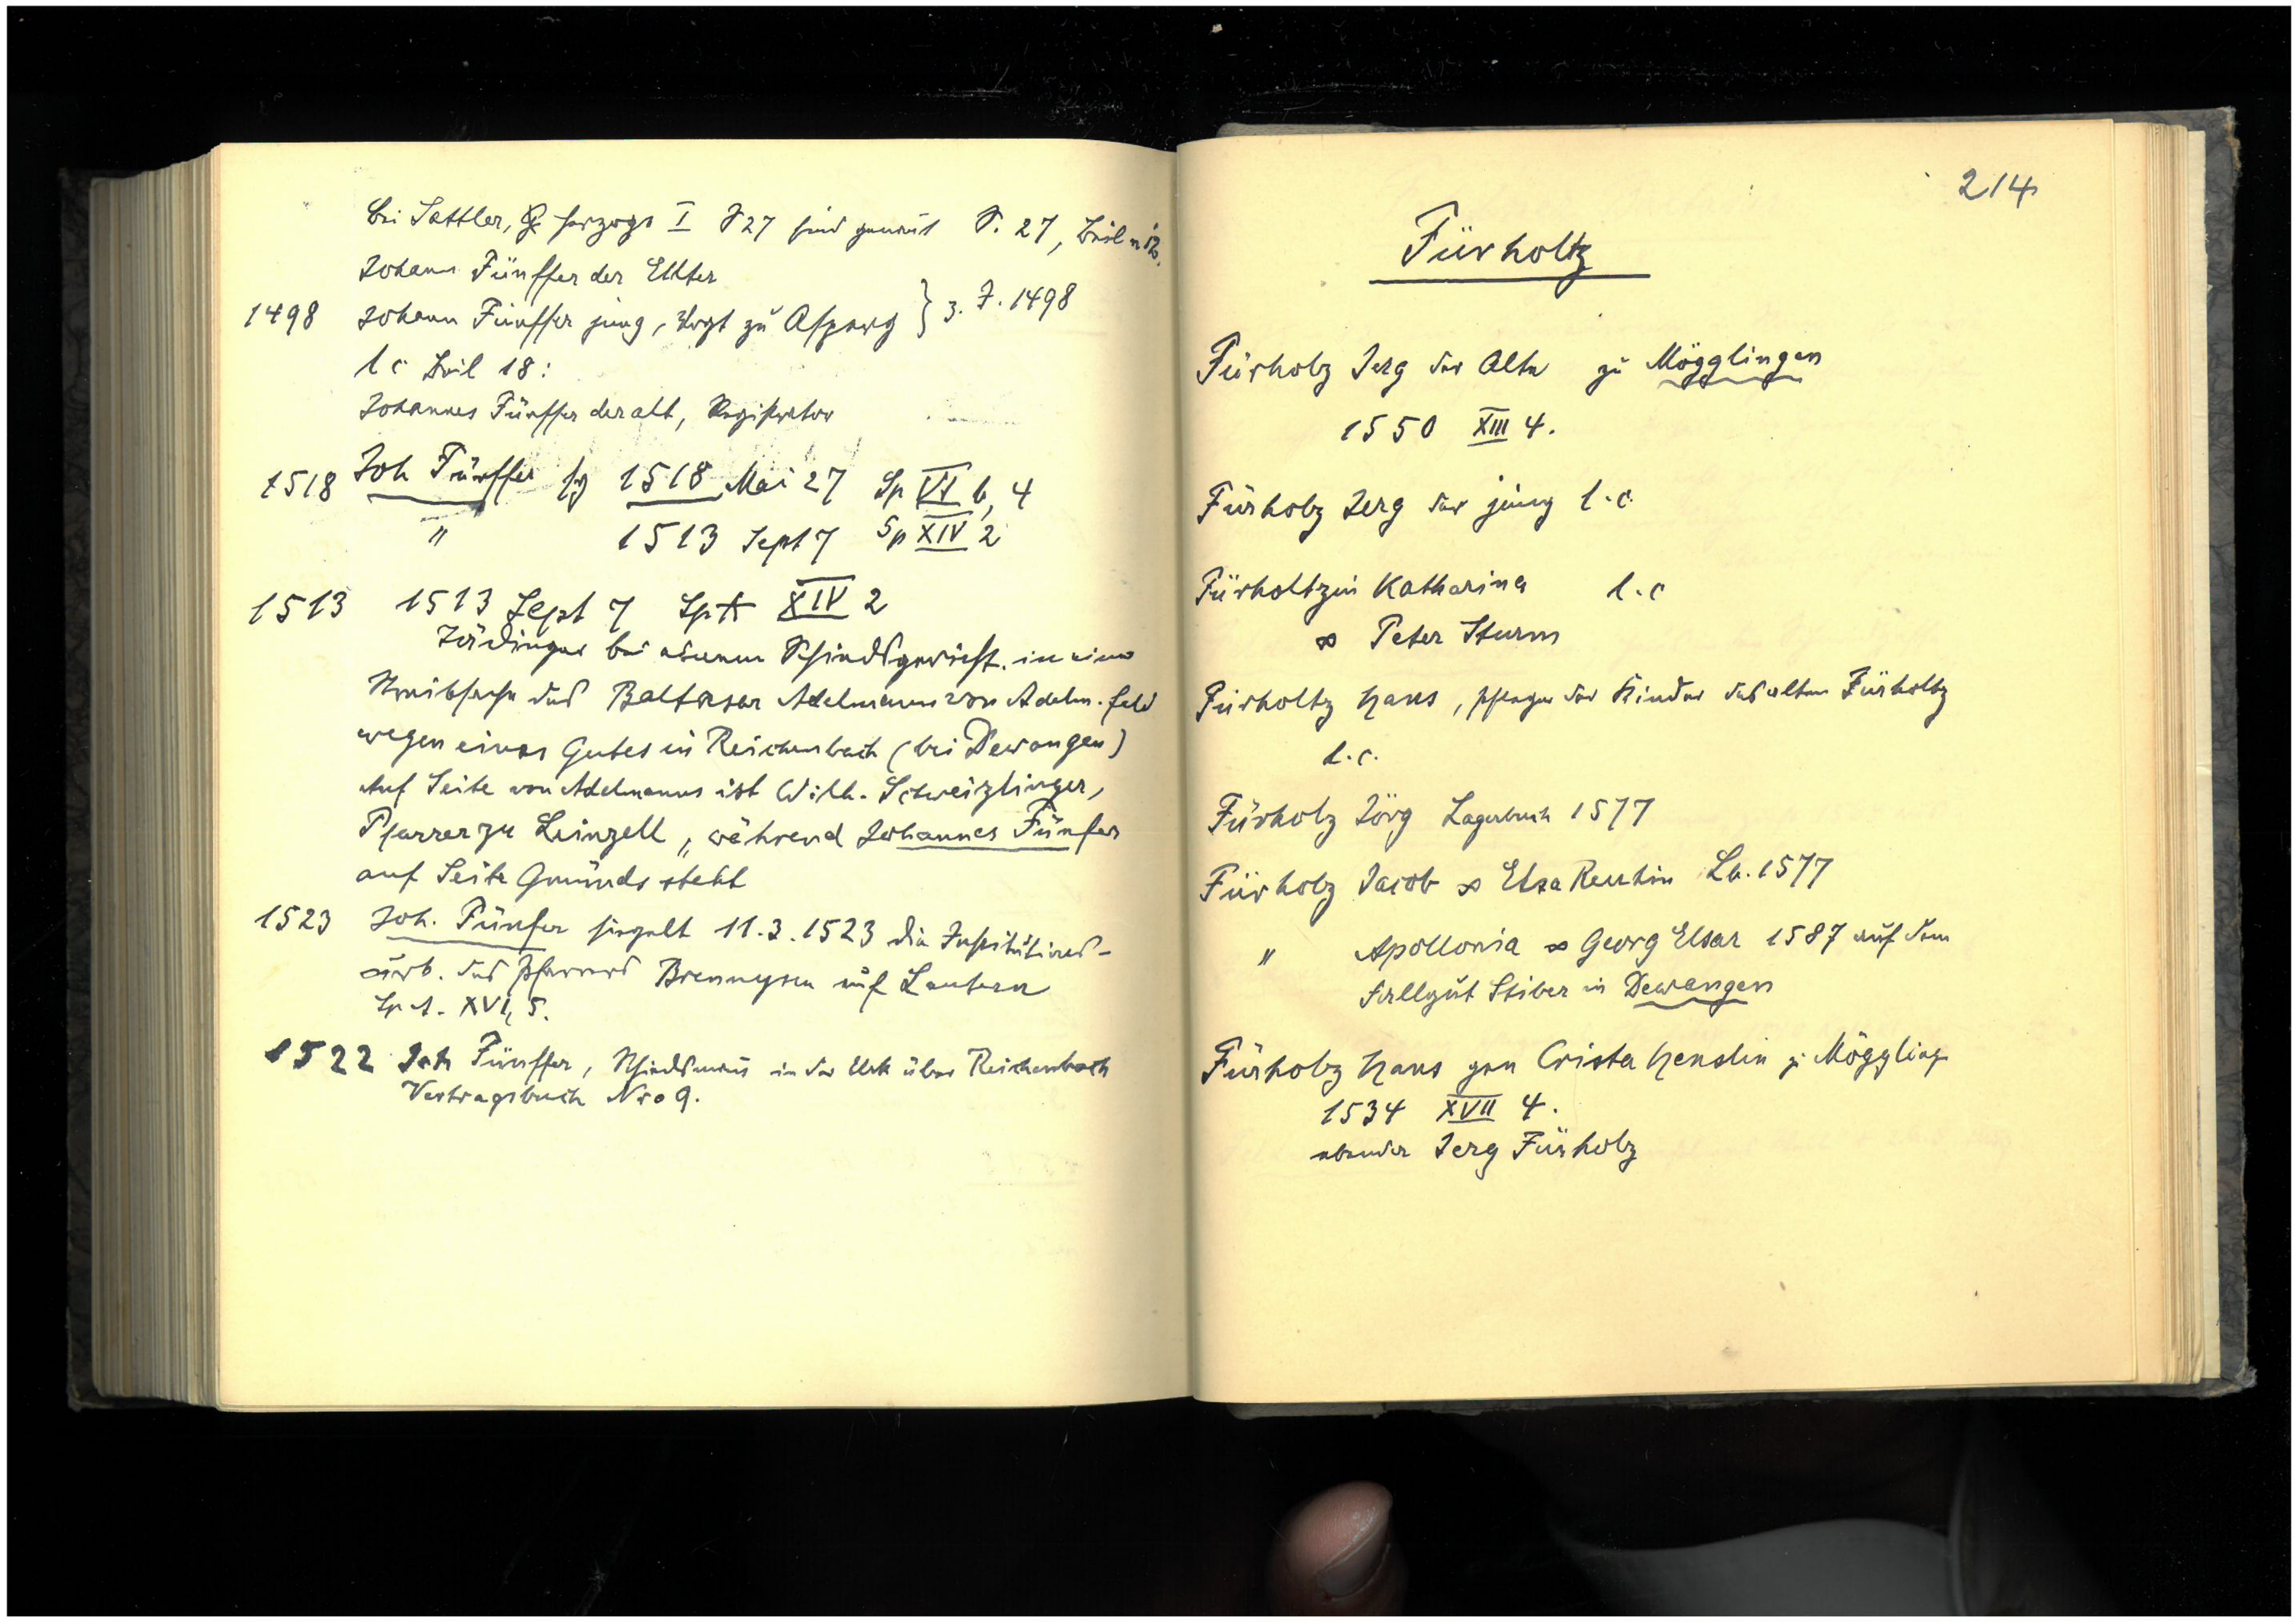 bei Sattler, G Herzoge I S 27 sind genannt S. 27, Beil
Johann Fünffer der Elter
1498 Johann Fünffer jung, Vogt zu Asperg } 3. 7. 1498
l c Beil 18:
Johannes Fünffer der alt, Registrator
1518 Joh Fünffer sg 1518 Mai 27 Sp VI b, 4
" 1513 Sept 7 Sp XIV 2
1513 1513 Sept 7 SpA XIV 2
bei einem Schiedsgericht in einer
Streitsache des Baltasar Adelmann von Adelm.feld
wegen eines Gutes in Reichenbach (bei Dewangen)
Auf Seite von Adelmanns ist Wilh. Schweizlinger,
Pfarrer zu Leinzell, während Johannes Fünfer
auf Seite Gmünds steht
1523 Joh. Fünfer siegelt 11.3.1523 die Institutions-
urk. des Pfarrers Brennysen auf Lautern
Sp A. XVI, 5.
1522 Joh Fünffer, Schiedsmann in der Urk über Reichenbach
Vertragsbuch Nro 9.
214
Fürholtz
Fürholz Jerg der Alte zu Mögglingen
1550 XIII 4.
Fürholz Jerg der jung l.c.
Fürholtzin Katharina l.c
∞ Peter Sturm
Fürholtz Hans, Pfleger der Kinder des alten Fürholtz
l.c.
Fürholz Jörg Lagerbuch 1577
Fürholz Jacob ∞ Elsa Reuhin Lb. 1577
" Apollonia ∞ Georg Elsar 1587 auf dem
Fallgut Stiber in Dewangen
Fürholz Hans gen Crista Henslin z. Mögglinge
1534 XVII 4.
ebenda Jerg Fürholz